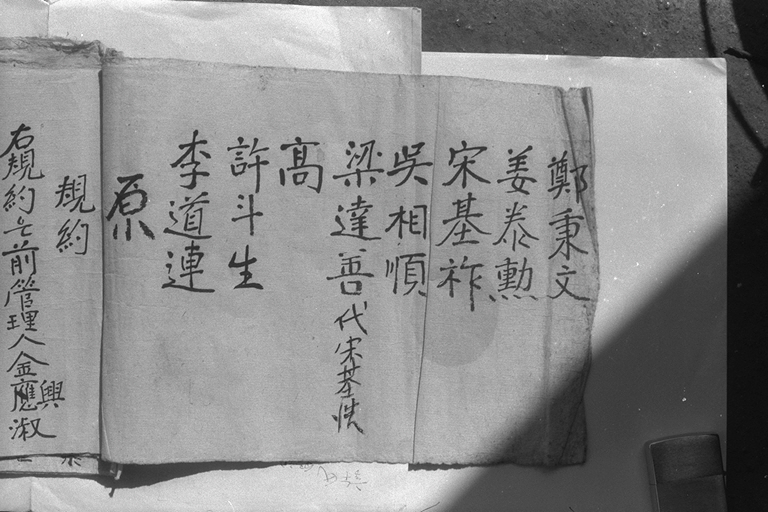 鄭秉文
姜泰勳
宋基祚
吳相順
梁達善代宋基
高
許斗生
李道連
原
規約
右規約은前管理人金應淑
興